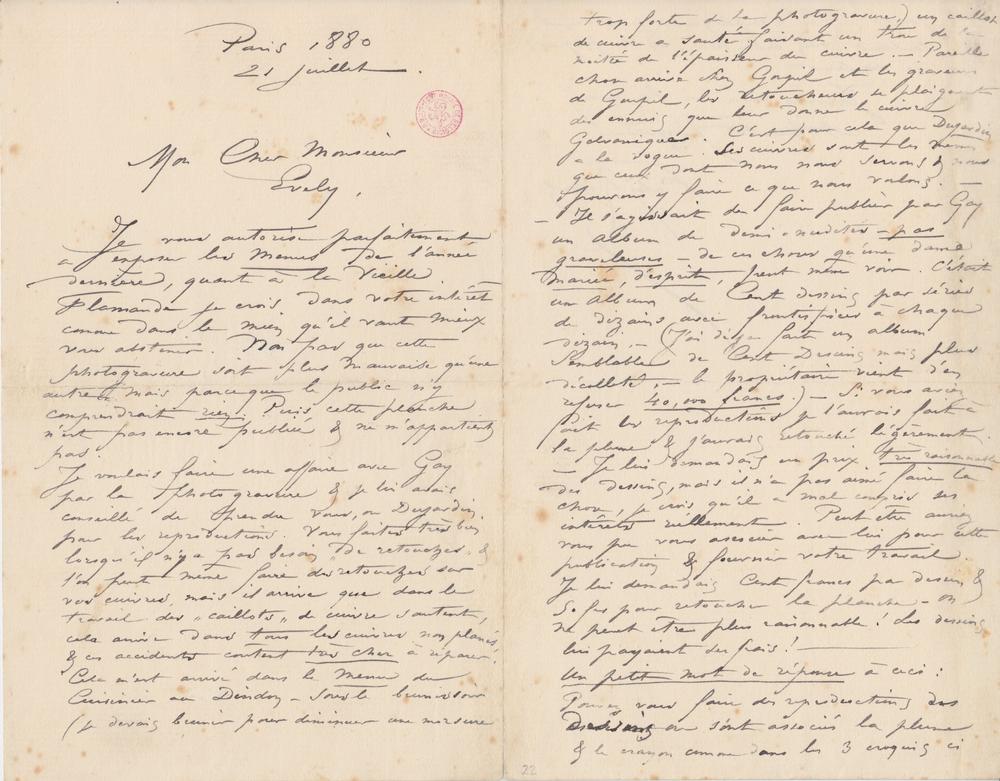 Paris 1880
21 juillet.
Mon Cher Monsieur
Evely,
Je vous autorise parfaitement
à exposer les menus de l'année
dernière, quant à la Vieille
Flamande je crois, dans votre intérêt
comme dans le mien qu'il vaut mieux
vous abstenir. Non pas que cette
photogravure soit plus mauvaise qu'une
autre mais parceque le public n'y
comprendrait rien. Puis cette planche
n'est pas encore publiée & ne m'appartient
pas.
Je voulais faire une affaire avec Gay
par la photogravure & je lui avais
conseillé de prendre vous, ou Dujardin
pour les reproductions. Vous faites très bien
lorsqu'il n'y a pas besoin de retouches, &
l'on peut même faire des retouches sur
vos cuivres, mais il arrive que dans le
travail des "caillots" de cuivre sautent,
cela arrive dans tous les cuivres non planés
& ces accidents coûtent très cher à réparer!
Cela m'est arrivé dans le Menu du
Cuisinier au Dindon – sous le brunissoir
(je devais brunir pour diminuer une morsure
trop forte de la photogravure) un caillot
de cuivre a sauté faisant un trou de la
moitié de l'épaisseur du cuivre. – Pareille
chose arrive chez Goupil et les graveurs
de Goupil, les retoucheurs se plaignent
des ennuis que leur donne le cuivre
Galvanique. C'est pour cela que Dujardin
a la vogue. Ses cuivres sont les mêmes
que ceux dont nous nous servons & nous
pouvons y faire ce que nous voulons. –
– Il s'agissait de faire publier par Gay
un album de demi-nudités – pas
graveleuses – de ces choses qu'une dame
mariée, d'esprit, peut même voir. C'était
un Album de Cent dessins par séries
de dizains avec frontispice à chaque
dizain. – (J'ai déjà fait un album
semblable de Cent Dessins mais plus
décolleté, – le propriétaire vient d'en
refuser 40,000 francs.) – Si vous aviez
fait les reproductions je l'aurais fait à
la plume & j'aurais retouché légèrement.
– Je lui demandais un prix très raisonnable
des dessins, mais il n'a pas aimé faire la
chose, je crois qu'il a mal compris ses
intérêts réellement. Peut être auriez
vous pu vous associer avec lui pour cette
publication & fournir votre travail.
Je lui demandais Cent francs par dessin &
50 frs pour retouche la planche – on
ne peut etre plus raisonnable! Les dessins
lui payaient ses frais! –
Un petit mot de réponse à ceci:
Pouvez vous faire des reproductions des
Dessins où sont associés la plume
& le crayon comme dans les 3 croquis ci
22